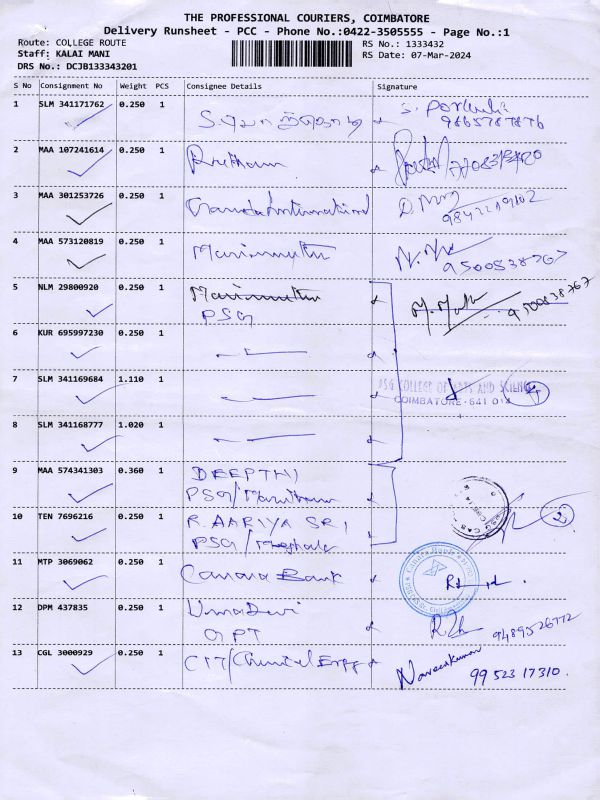 THE PROFESSIONAL COURIERS, COIMBATORE
Delivery Runsheet - PCC - Phone No.:0422-3505555 - Page No.:1
Route: COLLEGE ROUTE
RS No.: 1333432
Staff: KALAI MANI
RS Date: 07-Mar-2024
DRS No.: DCJB133343201
S No Consignment No Weight PCS Consignee Details Signature
1 SLM 341171762 0.250 1
9865787876
2 MAA 107241614 0.250 1
3 MAA 301253726 0.250 1 International
4 MAA 573120819 0.250 1 Marimuthu
9500838767
5 NLM 29800920 0.250 1 Marimuthu
9500838767
PSG
6 KUR 695997230 0.250 1
7 SLM 341169684 1.110 1
PSG COLLEGE OF ARTS AND SCIENCE
COIMBATORE - 641 014
8 SLM 341168777 1.020 1
9 MAA 574341303 0.360 1 DEEPTHI
PSG/
10 TEN 7696216 0.250 1 R. AARIYA SRI
2
PSG/
11 MTP 3069062 0.250 1 Canara Bank
12 DPM 437835 0.250 1 Uma Devi
GPT
9489526772
13 CGL 3000929 0.250 1 CIT/Chemical Engg
Naveenkumar
99523 17310.